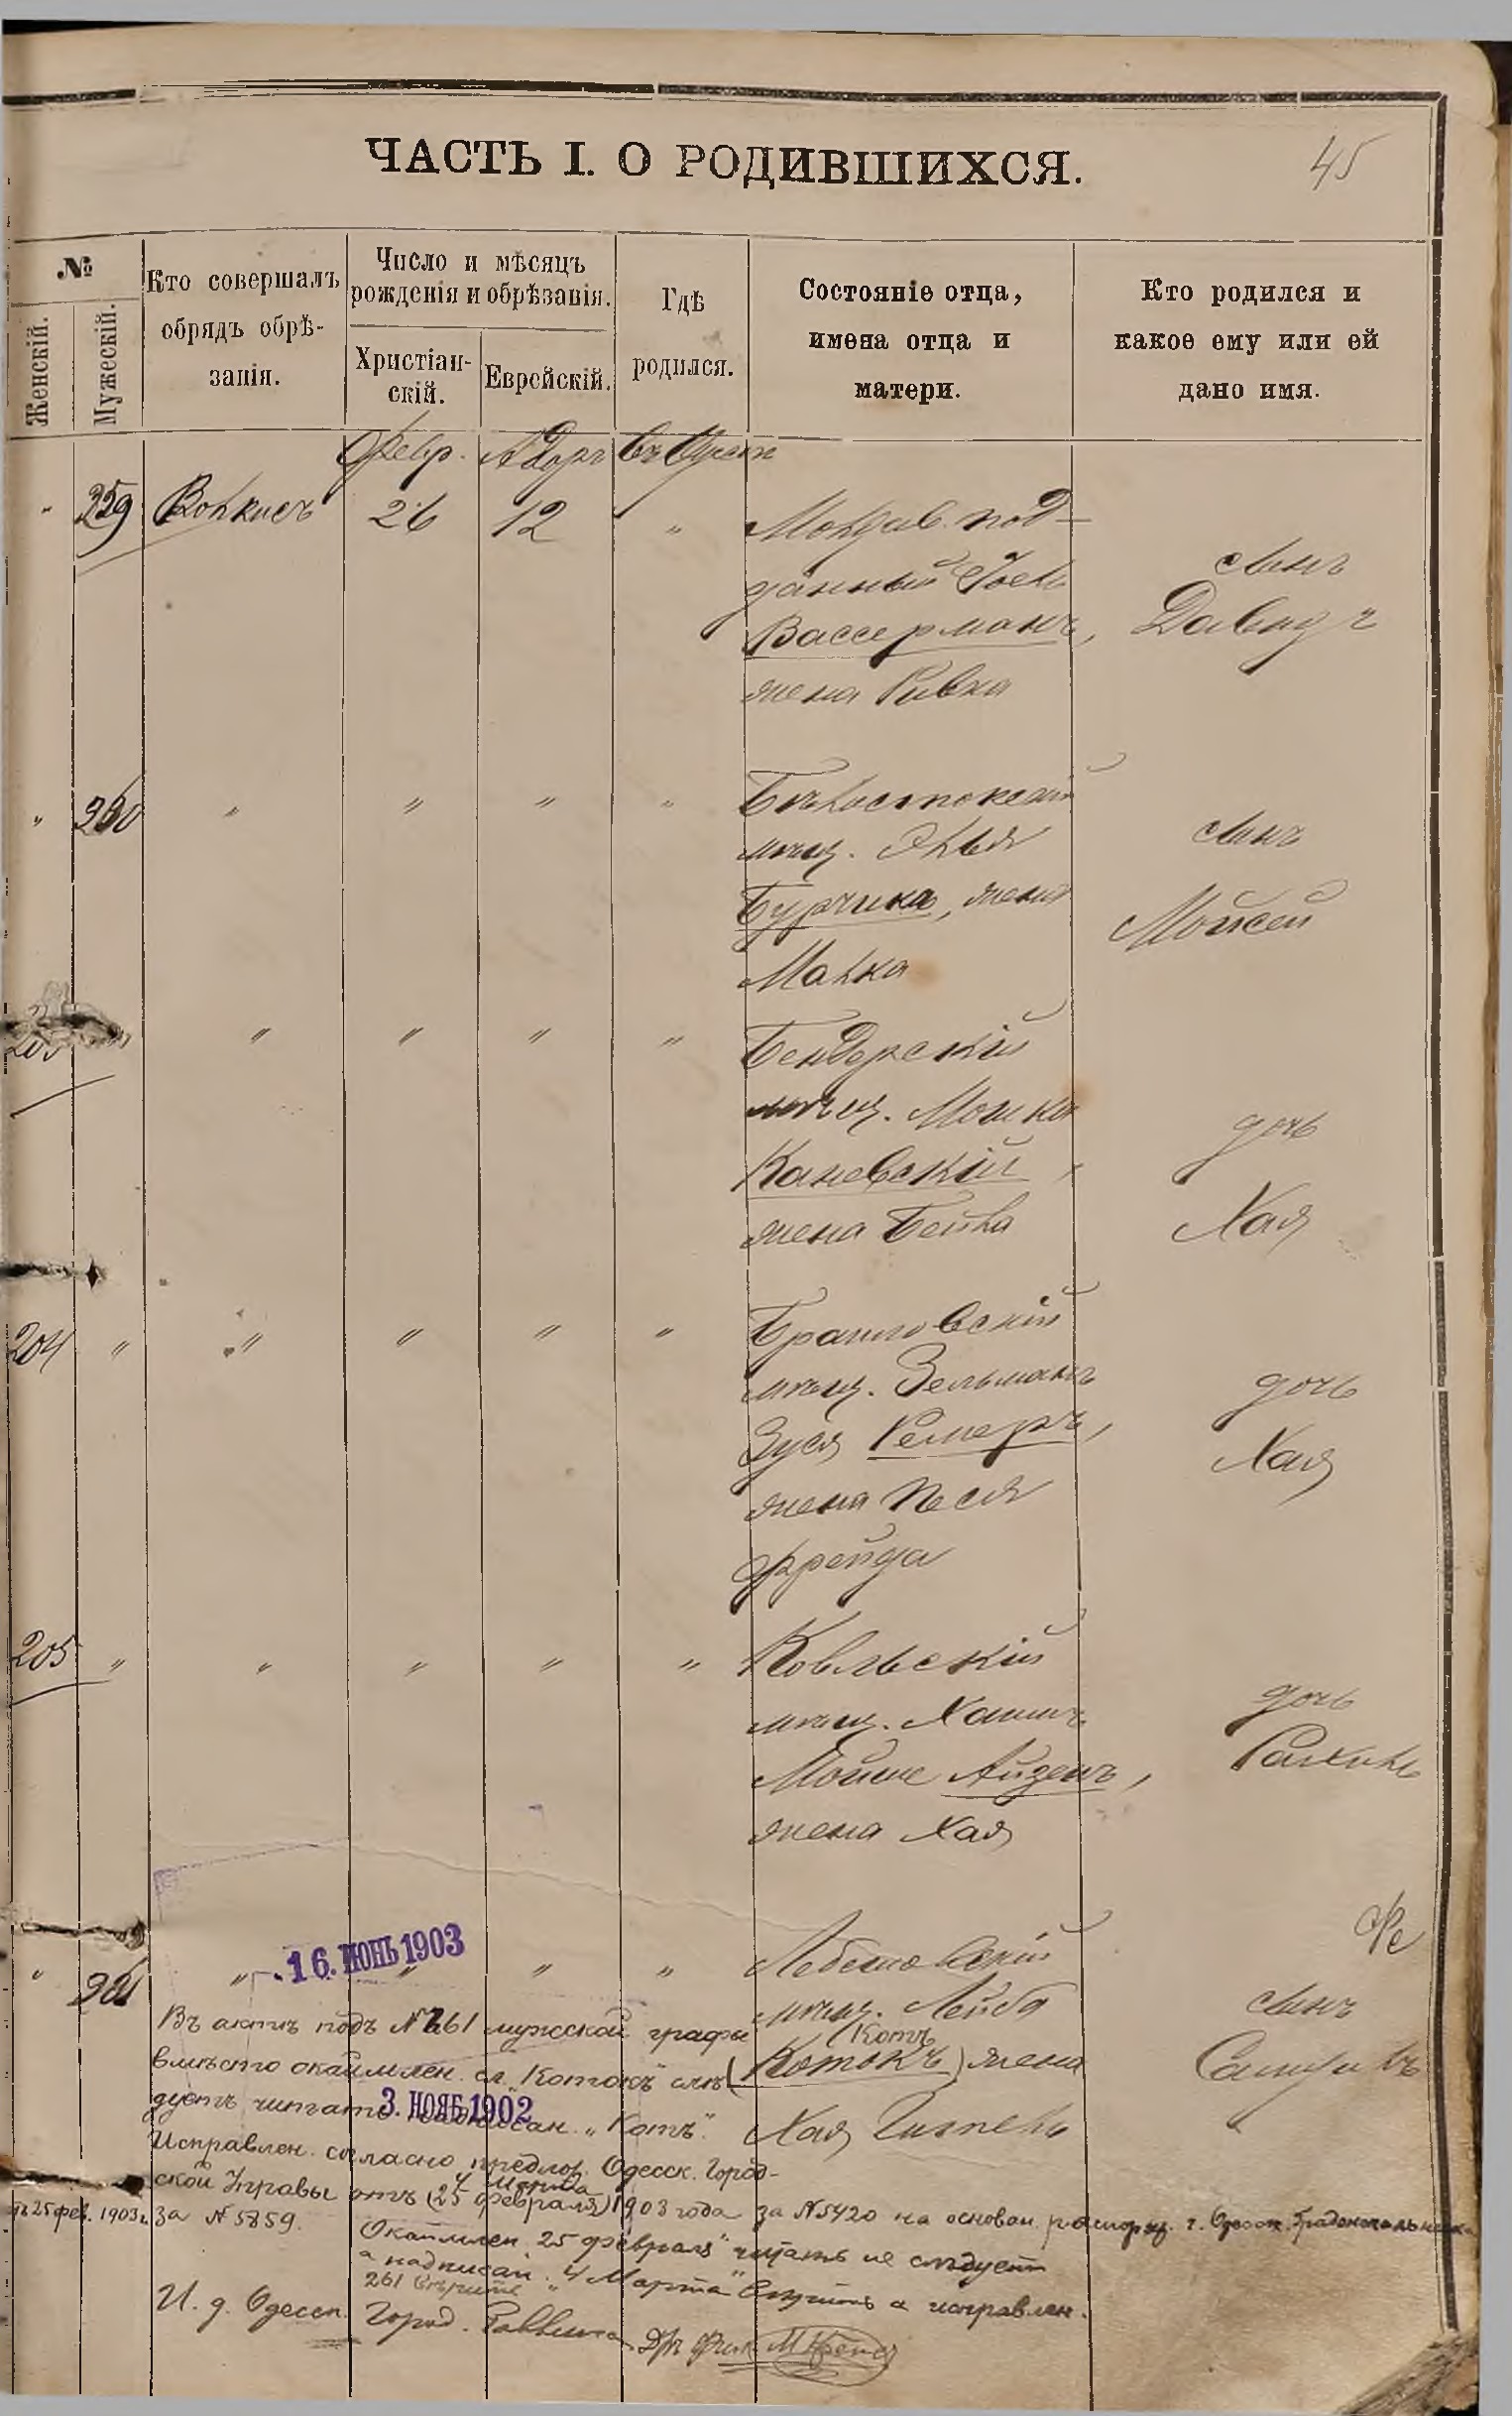 ЧАСТЬ I. О РОДИВШИХСЯ.
45
№
Женскій.
Мужескій.
Кто совершалъ
обрядъ обрѣ-
занія.
Число и мѣсяцъ
рожденія и обрѣзанія.
Христіан-
скій.
Еврейскій.
Гдѣ
родился.
Состояніе отца,
имена отца и
матери.
Кто родился и
какое ему или ей
дано имя.
Февр. Адаръ Въ Одессѣ
" 259 Волкисъ 26 12 " Молдав. под-
данный Іоель
Вассерманъ,
жена Ривка
сынъ
Давидъ
" 260 " " " " Бѣлостокскій
мѣщ. Элья
Бурчика, жена
Малка
сынъ
Мойсей
" " " " " Бендерскій
мѣщ. Мошко
Каневскій,
жена Бейла
дочь
Хая
204 " " " " " Браиловскій
мѣщ. Зельманъ
Зуся Ремеръ,
жена Песя
Фрейда
дочь
Хая
205 " " " " " Ковельскій
мѣщ. Хаимъ
Мойше Айзенъ,
жена Хая
дочь
Рахиль
" 261 " " " "
16. ИЮНЬ 1903
мѣщ. Лейба
Котъ
(Котокъ) жена
Хая
сынъ
Въ актѣ подъ №261 мужской графы
вмѣсто окаймлен. сл. "Котокъ" слѣ-
дуетъ читать "Котъ".
3. НОЯБ 1902
Исправлен. согласно предлож. Одесск. Город-
ской Управы отъ (25 февраля) 1903 года за №5420 на основан. распоряж. г. Одесск. Градоначальника
4 Марта
25 фев. 1903 г. за № 5859.
Окаймлен. "25 февраля" читать не слѣдуетъ
а надписан. "4 Марта" вѣрить и исправлен.
261 вѣрить
И. д. Одесск. Город. Раввина Д-ръ фил.